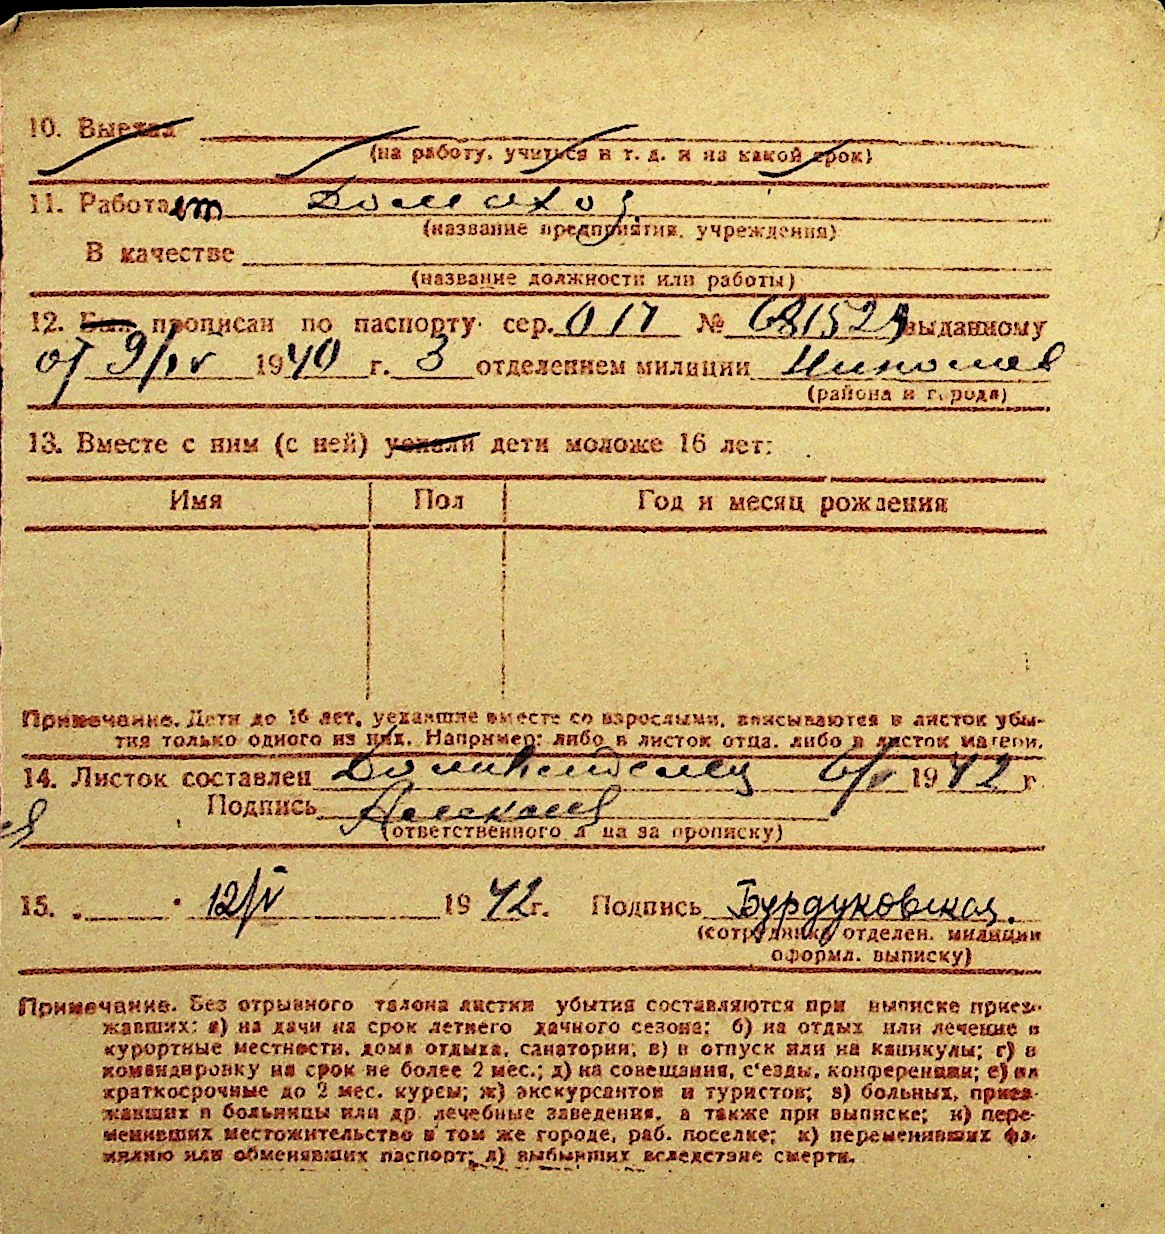 10. Выехал
(на работу, учиться и т. д. и на какой срок)
11. Работает Домоход.
(название предприятия, учреждения)
В качестве
(название должности или работы)
12. Был прописан по паспорту сер. 017 № 681529 выданному
от 9/IV 1940 г. 3 отделением милиции Николаев
(района и города)
13. Вместе с ним (с ней) уехали дети моложе 16 лет:
Имя Пол Год и месяц рождения
Примечание. Дети до 16 лет, уехавшие вместе со взрослыми, вписываются в листок убы-
тия только одного из них. Например: либо в листок отца, либо в листок матери.
14. Листок составлен 6/V 1942 г
Подпись
(ответственного лица за прописку)
15. 12/V 1942 г. Подпись Бурдуковская.
(сотрудника отделен. милиции
оформл. выписку)
Примечание. Без отрывного талона листки убытия составляются при выписке приез-
жавших: а) на дачи на срок летнего дачного сезона; б) на отдых или лечение в
курортные местности, дома отдыха, санатории; в) в отпуск или на каникулы; г) в
командировку на срок не более 2 мес.; д) на совещания, с'езды, конференции; е) на
краткосрочные до 2 мес. курсы; ж) экскурсантов и туристов; з) больных, приез-
жавших в больницы или др. лечебные заведения, а также при выписке; и) пере-
менивших местожительство в том же городе, раб. поселке; к) переменивших фа-
милию или обменявших паспорт; л) выбывших вследствие смерти.